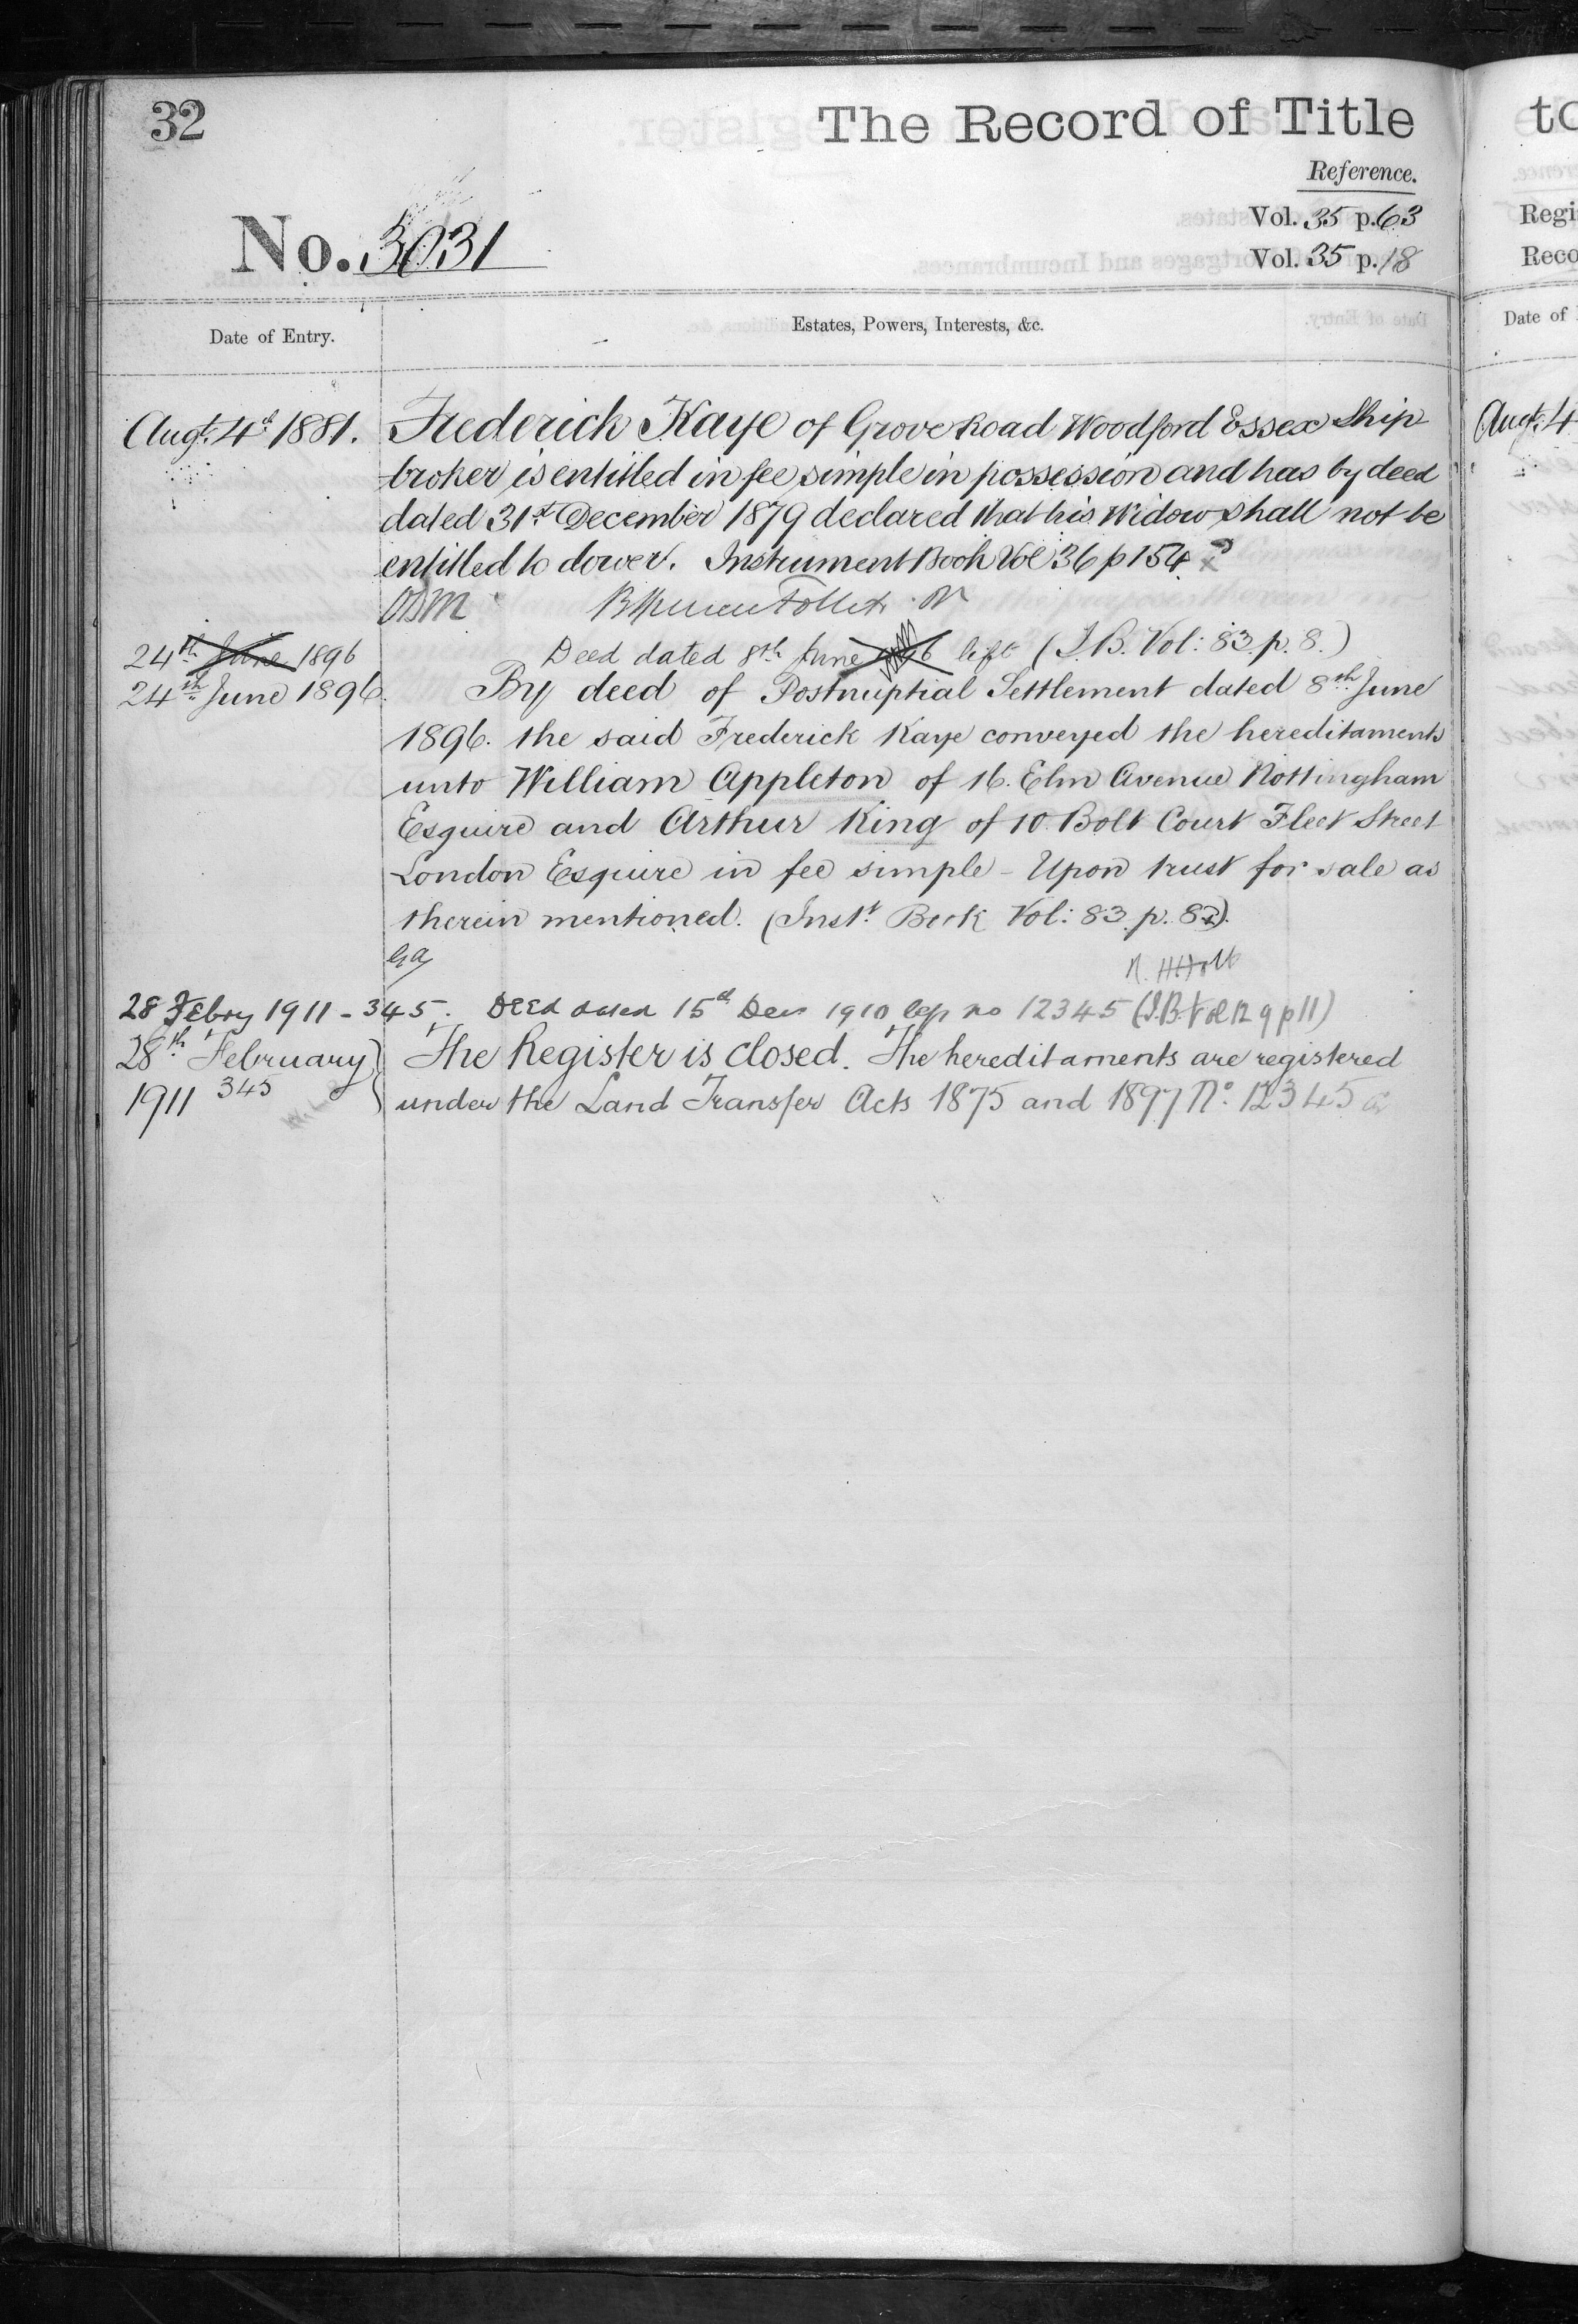 32
The Record of Title
Reference.
No. 3031
Vol. 35 p. 63
Vol. 35 p. 18
Date of Entry.
Estates, Powers, Interests, &c.
Augt. 4th 1881. Frederick Kaye of Grove Road Woodford Essex Ship
broker is entitled in fee simple in possession and has by deed
dated 31st December 1879 declared that his Widow shall not be
entitled to dower. Instrument Book Vol 36 p 154
24th June 1896 Deed dated 8th June left (I.B. Vol: 83. p. 8.)
24th June 1896. By deed of Postnuptial Settlement dated 8th June
1896. the said Frederick Kaye conveyed the hereditaments
unto William Appleton of 16. Elm Avenue Nottingham
Esquire and Arthur King of 10 Bolt Court Fleet Street
London Esquire in fee simple - Upon trust for sale as
therein mentioned. (Inst. Book Vol: 83. p. 8).
28 Febry 1911 - 345. Deed dated 15th Decr 1910 no 12345 (I.B. Vol 129 p 11)
28th February The Register is closed. The hereditaments are registered
1911 345 under the Land Transfer Acts 1875 and 1897 No. 12345
to
Regi
Reco
Date of
Augt. 4